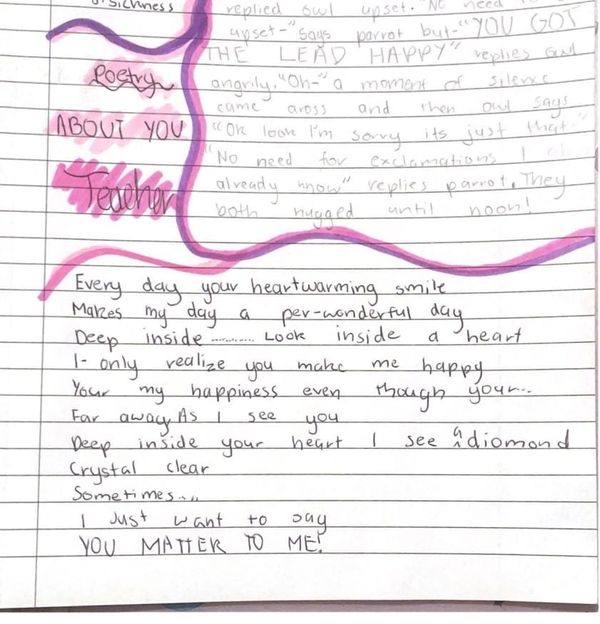 SICKNESS
replied owl upset. "No need
upset-" says parrot but-"YOU GOT
THE LEAD HAPPY" replies owl
angrily. "Oh-" a moment of silence
came aross and then owl says
"Ok look I'm sorry its just that-"
"No need for exclamations I
already know" replies parrot. They
both hugged until noon!
Poetry
ABOUT YOU
Teacher
Every day your heartwarming smile
Makes my day a per-wonderful day
Deep inside .......... Look inside a heart
I- only realize you make me happy
Your my happiness even though your...
Far away As I see you
Deep inside your heart I see a diomond
Crystal clear
Sometimes....
I Just want to say
YOU MATTER TO ME!